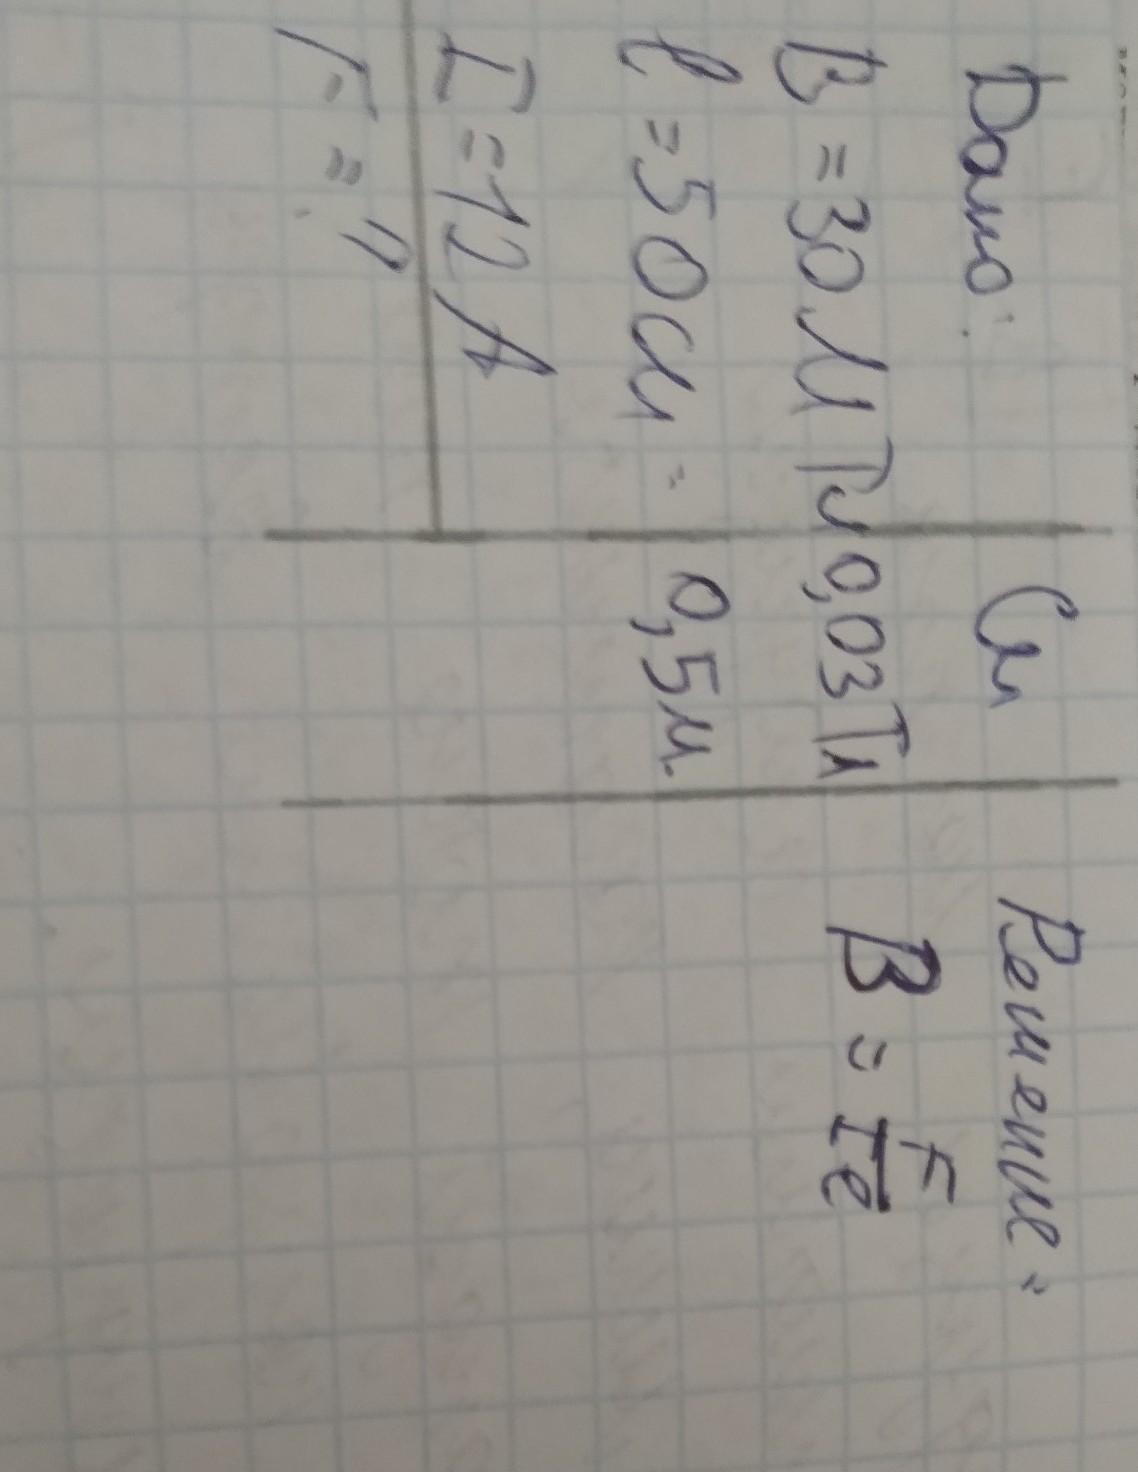 Дано:
B = 30 мТл
l = 50 см =
I = 12 А
F = ?
Си
0,03 Тл
0,5 м.
Решение:
B = F / Il